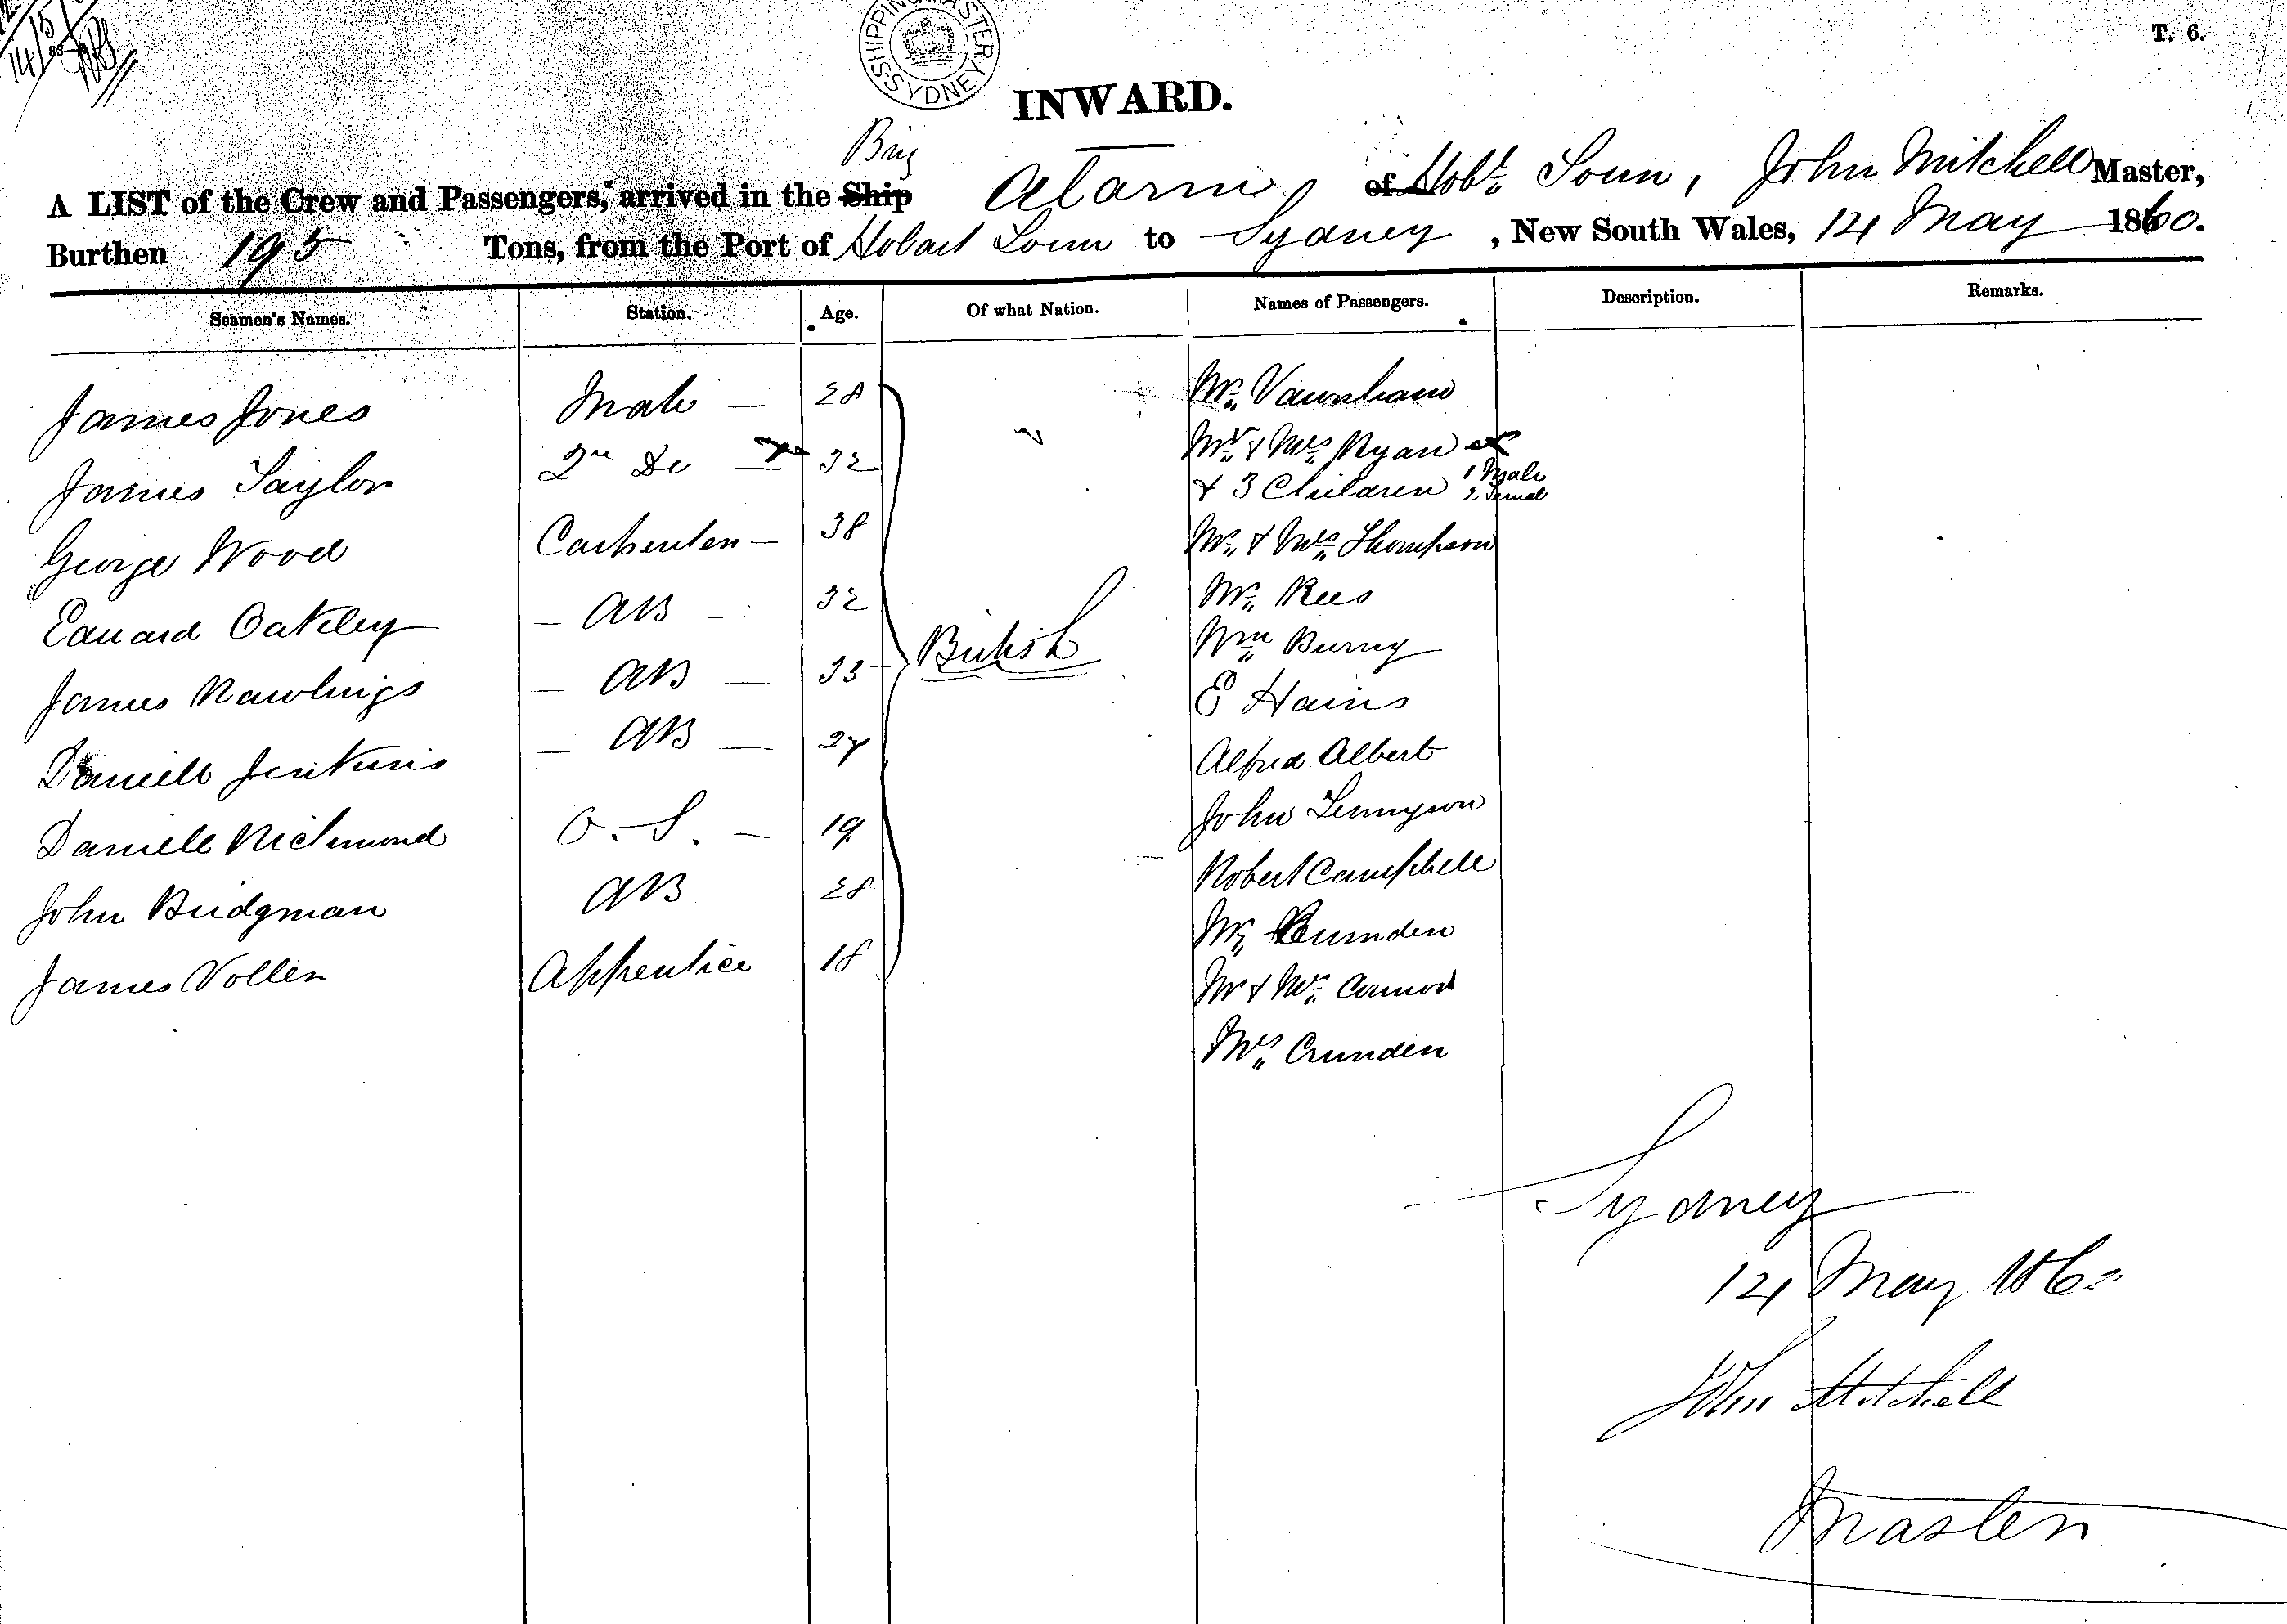 T. 6.
SHIPPING MASTER SYDNEY
INWARD.
Brig
A LIST of the Crew and Passengers, arrived in the Ship Alarm, of Hobt. Town, John Mitchell Master,
Burthen 195 Tons, from the Port of Hobart Town to Sydney, New South Wales, 14 May 1860.
Seamen's Names. Station. Age. Of what Nation. Names of Passengers. Description. Remarks.
James Jones Mate — 28 Mr.
James Taylor 2nd Do — 32 Mr. & Mrs. Ryan
& 3 Children 1 Male 2 Femal
George Wood Carpenter — 38 Mr. & Mrs. Thompson
Edward Oakley — AB — 32 Mr. Rees
James Rawlings — AB — 33 British Wm Burny
E Hains
Daniell Jenkins — AB — 27 Alfred Albert
Daniell Richmond O.S. — 19 John Tennyson
John Bridgman AB 28 Robert Campbell
James Voller Apprentice 18 Mr.
Mr & Mrs.
Mrs. Crunden
Sydney
14 May 1860
John Mitchell
Master